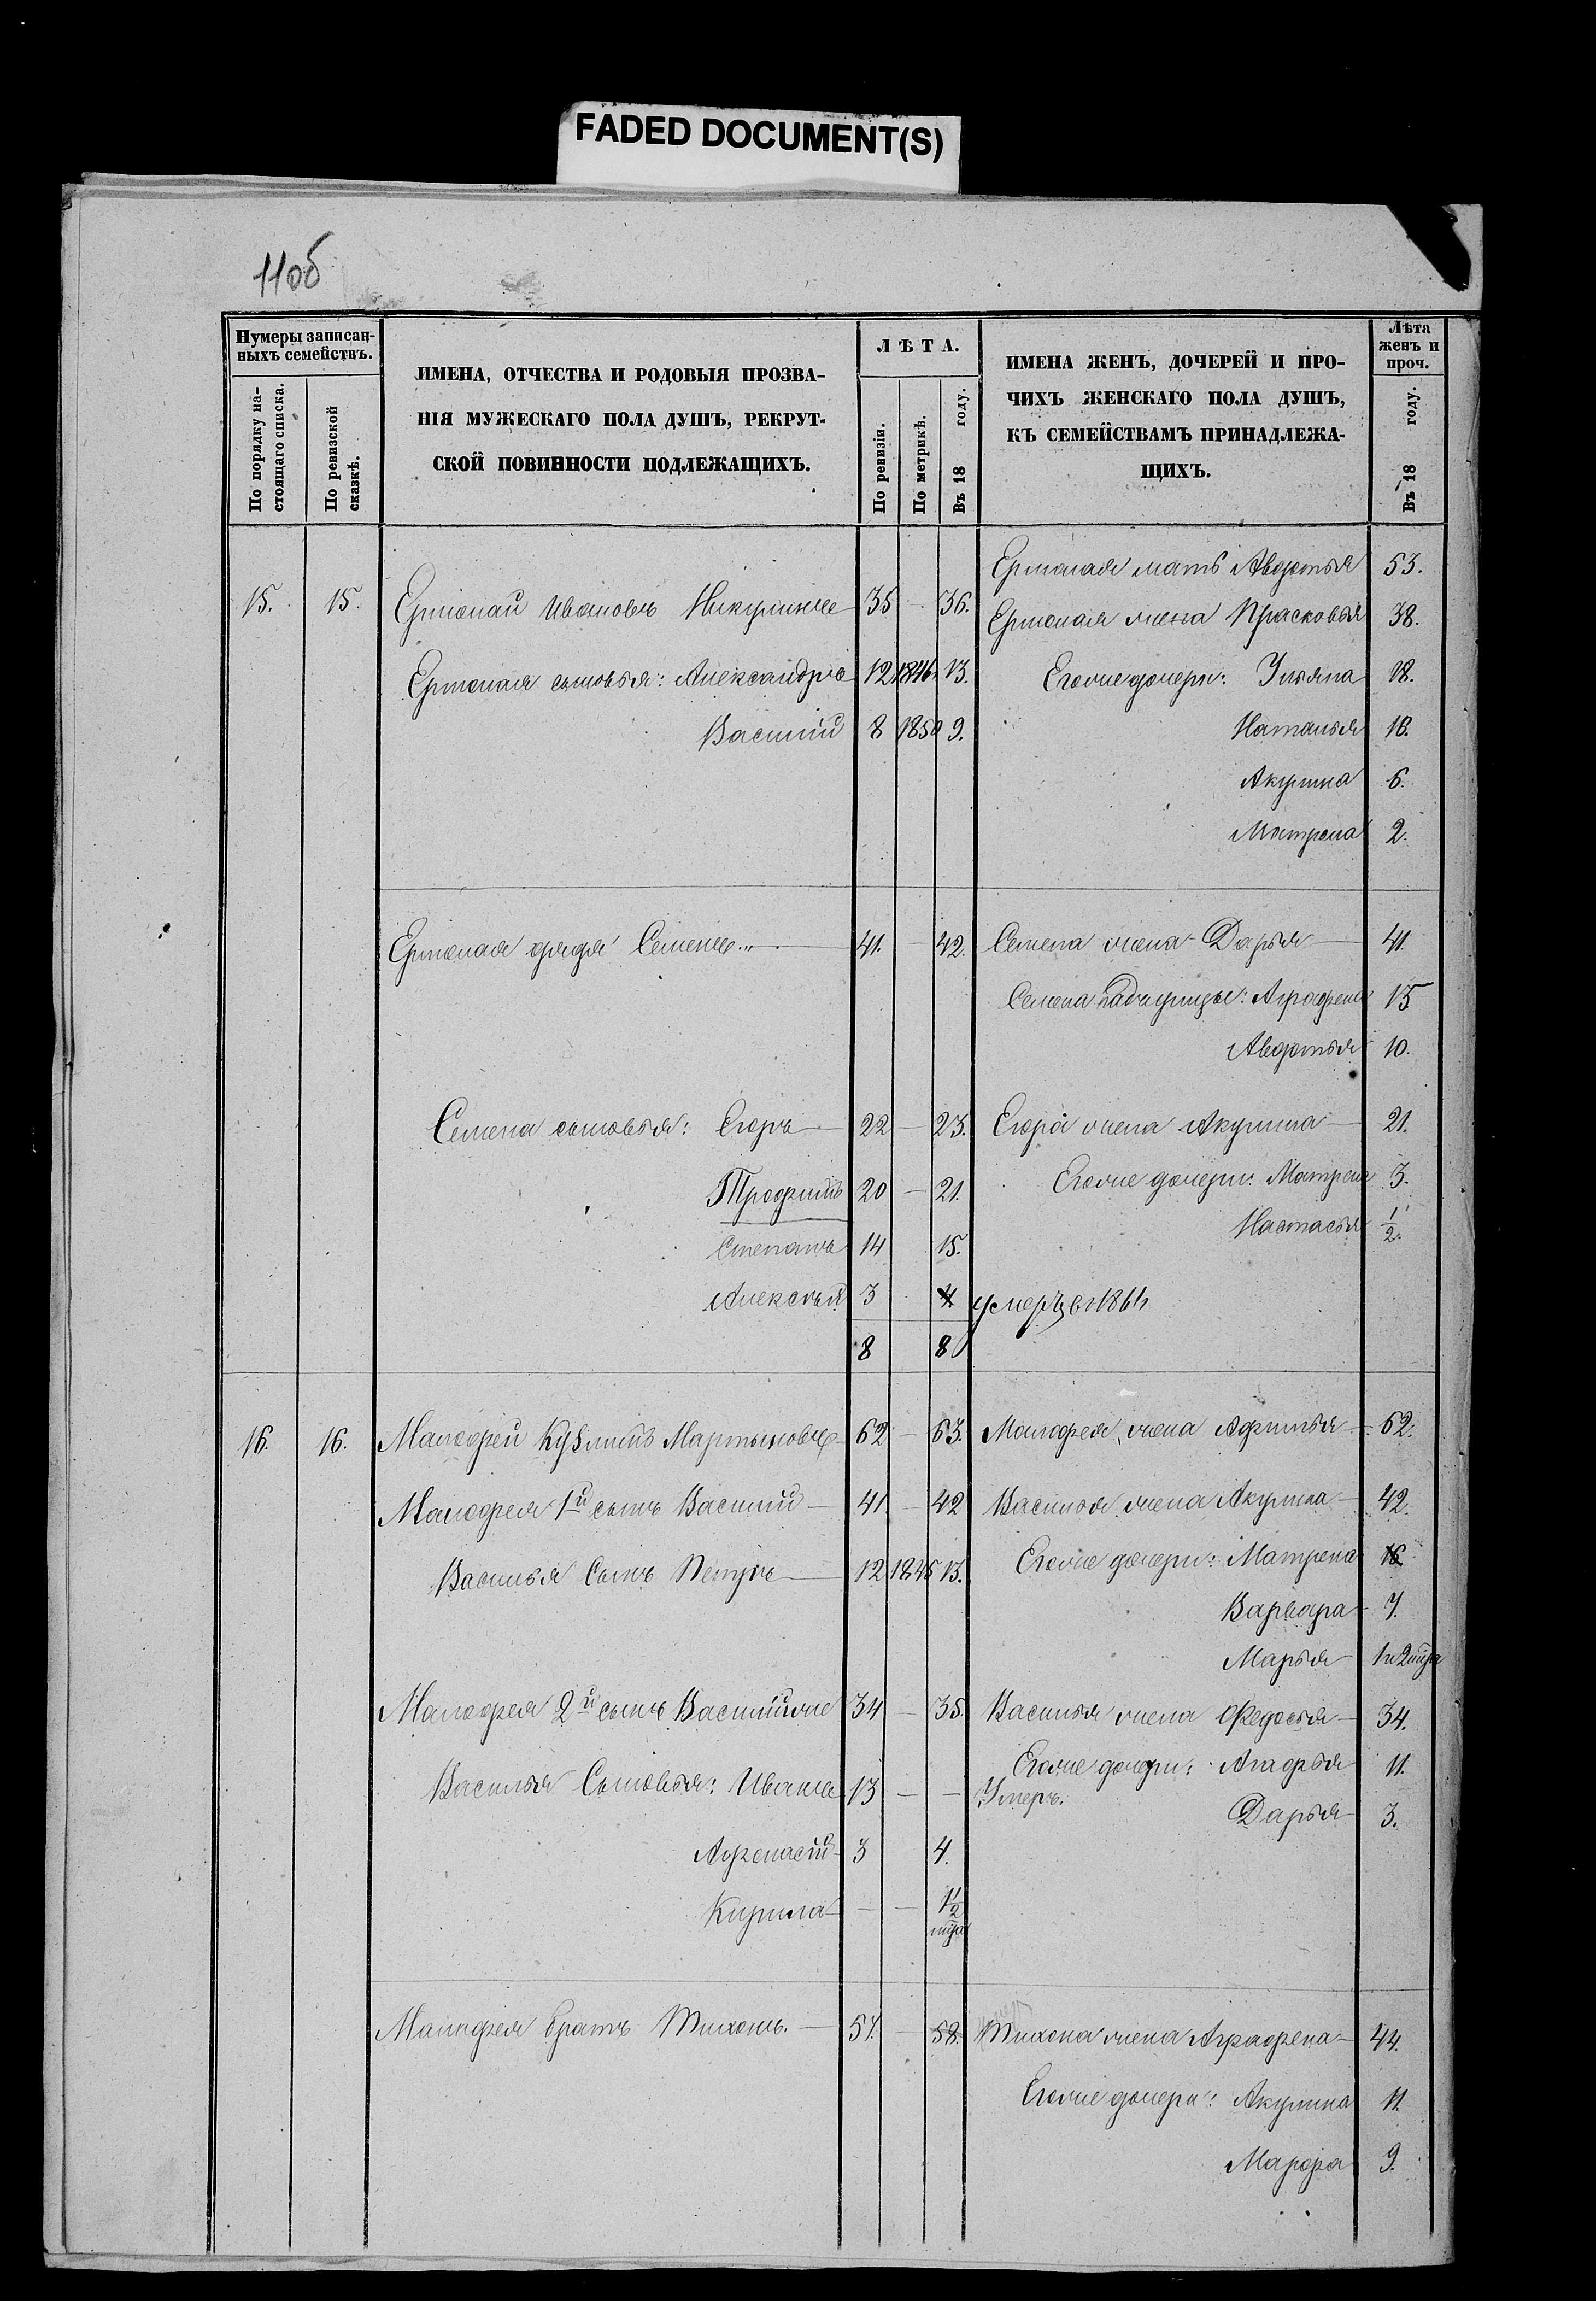 FADED DOCUMENT(S)
11об
Нумеры записан-
ныхъ семействъ.
По порядку на-
стоящаго списка.
По ревизской
сказкѣ.
ИМЕНА, ОТЧЕСТВА И РОДОВЫЯ ПРОЗВА-
НІЯ МУЖЕСКАГО ПОЛА ДУШЪ, РЕКРУТ-
СКОЙ ПОВИННОСТИ ПОДЛЕЖАЩИХЪ.
ЛѢТА.
По ревизіи.
По метрикѣ.
Въ 18 году.
ИМЕНА ЖЕНЪ, ДОЧЕРЕЙ И ПРО-
ЧИХЪ ЖЕНСКАГО ПОЛА ДУШЪ,
КЪ СЕМЕЙСТВАМЪ ПРИНАДЛЕЖА-
ЩИХЪ.
Лѣта
женъ и
проч.
Въ 18 году.
Ермолая мать Авдотья 53.
15. 15. Ермолай Ивановъ Никулинъ 35 - 36. Ермолая жена Прасковья 38.
Ермолая сыновья: Александръ 12 1846 13. Его же дочери: Ульяна 18.
Василий 8 1850 9. Наталья 16.
Акулина 6.
Матрена 2.
Ермолая дядя Семенъ 41. - 42. Семена жена Дарья 41.
Семена падчерицы: Аграфена 15
Авдотья 10.
Семена сыновья: Егоръ 22 - 23. Егора жена Акулина 21.
Трофимъ 20 - 21. Его же дочери: Матрена 3.
Настасья 1/2.
Степанъ 14 15.
Алексѣй 3 4 умеръ в 1864
8 8
16. 16. Малофей Кузминъ Мартыновъ 62 - 63. Малофея жена Афимья 62.
Малофея 1й сынъ Василий 41. - 42 Василья жена Акулина 42.
Василья Сынъ Петръ 12 1845 13. Его же дочери: Матрена 16.
Варвара 7.
Марья 1 и 2 мца
Малофея 2й сынъ Василий же 34 - 35. Василья жена Федосья 34.
Его же дочери: Агафья 11.
Василья Сыновья: Иванъ 13 - - Умеръ.
Дарья 3.
Афонасій 3 4.
Кирила - - 1 1/2
мца
Малофея братъ Тихонъ. 57. - 58. Тихона жена Аграфена 44.
Его же дочери: Акулина 11.
Марфа 9.